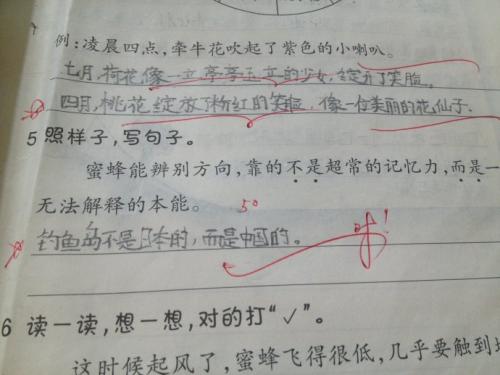 例:凌晨四点,牵牛花吹起了紫色的小喇叭。
七月,荷花像一位亭亭玉立的少女,绽开了笑脸。
四月,桃花绽放了粉红的笑脸,像一位美丽的花仙子.
5 照样子,写句子。
蜜蜂能辨别方向,靠的不是超常的记忆力,而是一
无法解释的本能。
50
钓鱼岛不是日本的,而是中国的。
6 读一读,想一想,对的打“✓”。
这时候起风了,蜜蜂飞得很低,几乎要触到